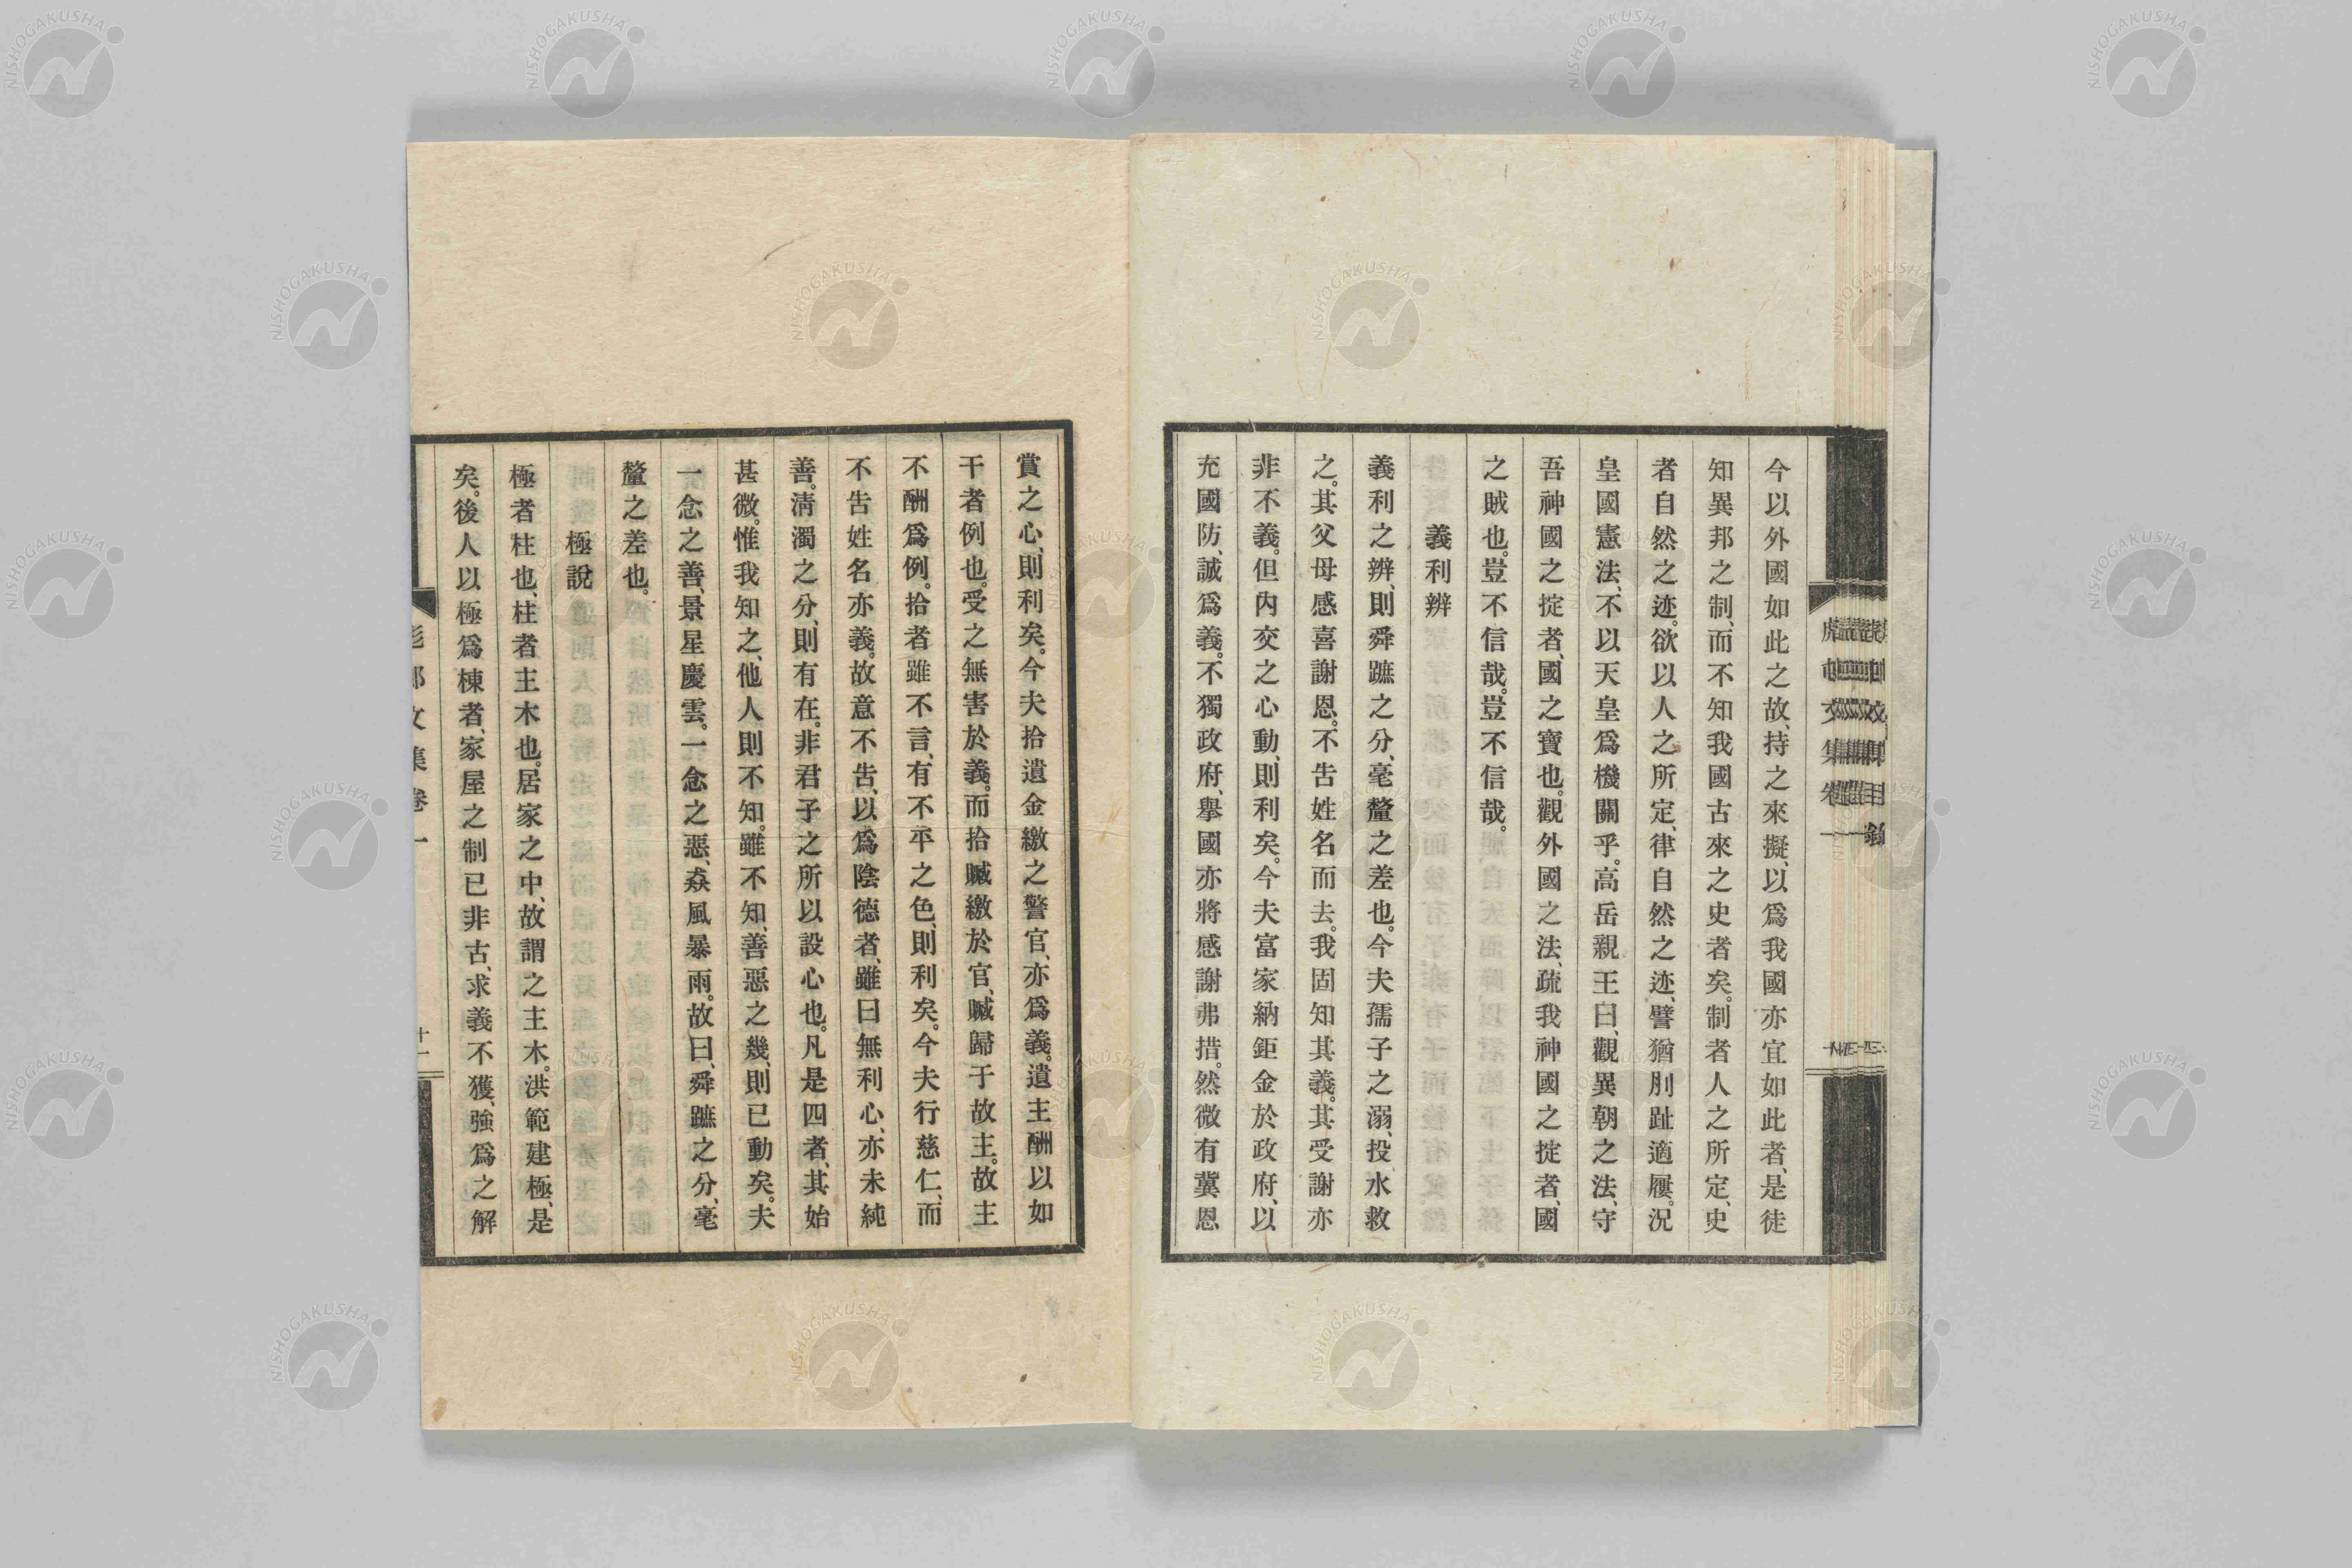 今以外國如此之故、持之來擬、以爲我國亦宜如此者、是徒
知異邦之制、而不知我國古來之史者矣。制者人之所定、史
者自然之迹。欲以人之所定、律自然之迹、譬猶刖趾適屨。況
皇國憲法、不以天皇爲機關乎。高岳親王曰、觀異朝之法、守
吾神國之掟者、國之寶也。觀外國之法、疏我神國之掟者、國
之賊也。豈不信哉。豈不信哉。
義利辨
義利之辨、則舜蹠之分、毫釐之差也。今夫孺子之溺、投水救
之。其父母感喜謝恩。不告姓名而去。我固知其義。其受謝亦
非不義。但內交之心動、則利矣。今夫富家納鉅金於政府、以
充國防、誠爲義。不獨政府、擧國亦將感謝弗措。然微有冀恩
賞之心、則利矣。今夫拾遺金繳之警官、亦爲義。遺主酬以如
干者例也。受之無害於義。而拾贓繳於官、贓歸于故主。故主
不酬爲例。拾者雖不言、有不平之色、則利矣。今夫行慈仁、而
不告姓名亦義。故意不告、以爲陰德者、雖曰無利心、亦未純
善。淸濁之分、則有在。非君子之所以設心也。凡是四者、其始
甚微。惟我知之、他人則不知。雖不知、善惡之幾、則已動矣。夫
一念之善、景星慶雲。一念之惡、猋風暴雨。故曰、舜蹠之分、毫
釐之差也。
極說
極者柱也、柱者主木也。居家之中、故謂之主木。洪範建極、是
矣。後人以極爲棟者、家屋之制已非古、求義不獲、強爲之解
文集卷一
十一
虎邨文集卷一
NISHOGAKUSHA